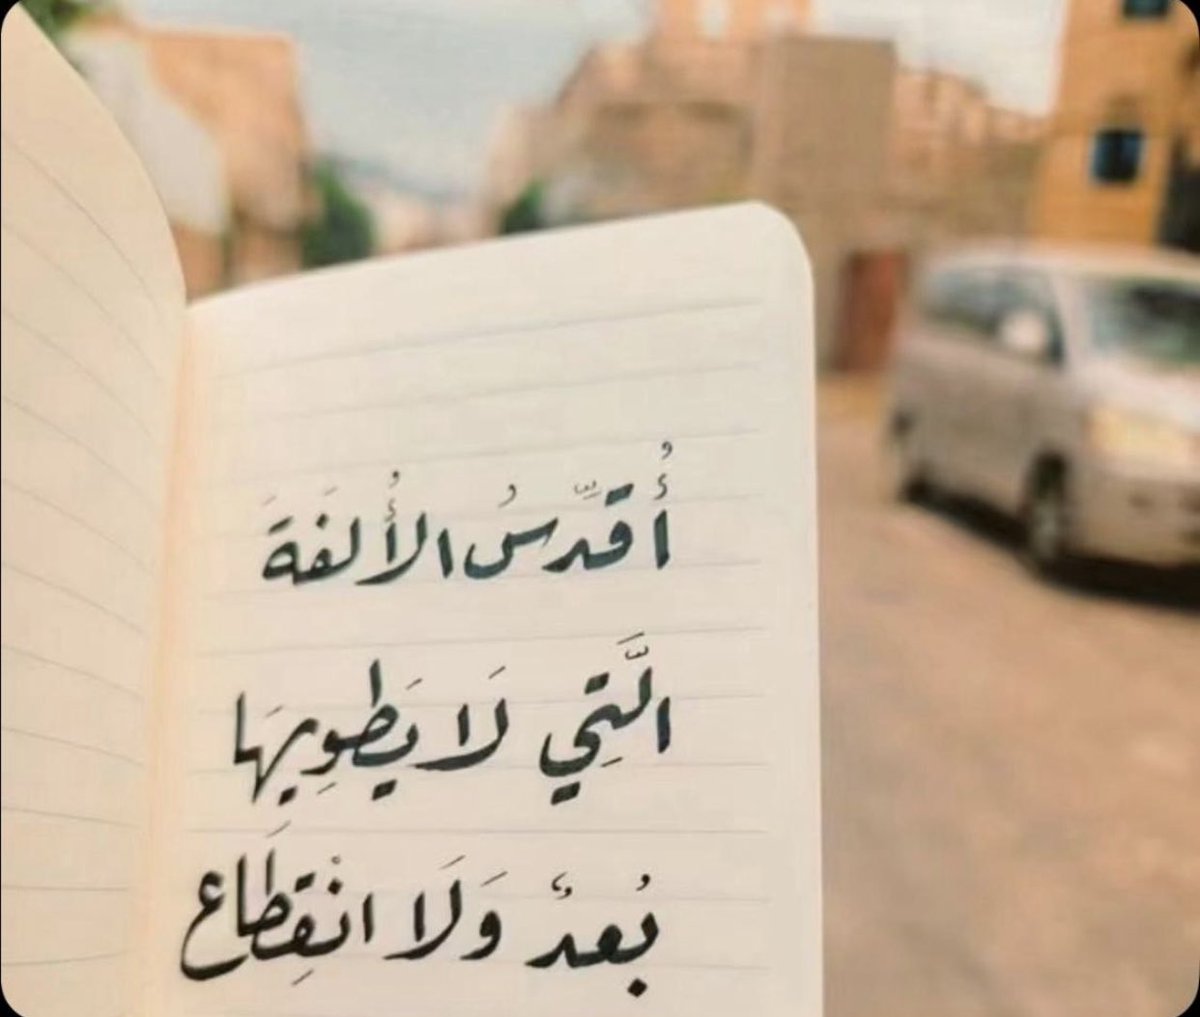 أُقدِّسُ الأُلفَةَ
الَّتِي لَا يَطوِيهَا
بُعدٌ وَلَا انْقِطَاع